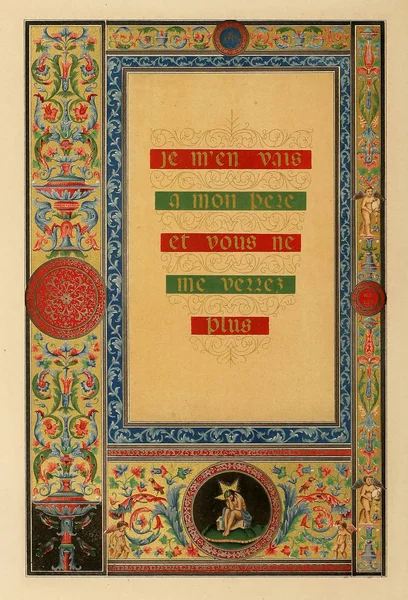 je m'en vais
a mon pere
et vous ne
me verrez
plus